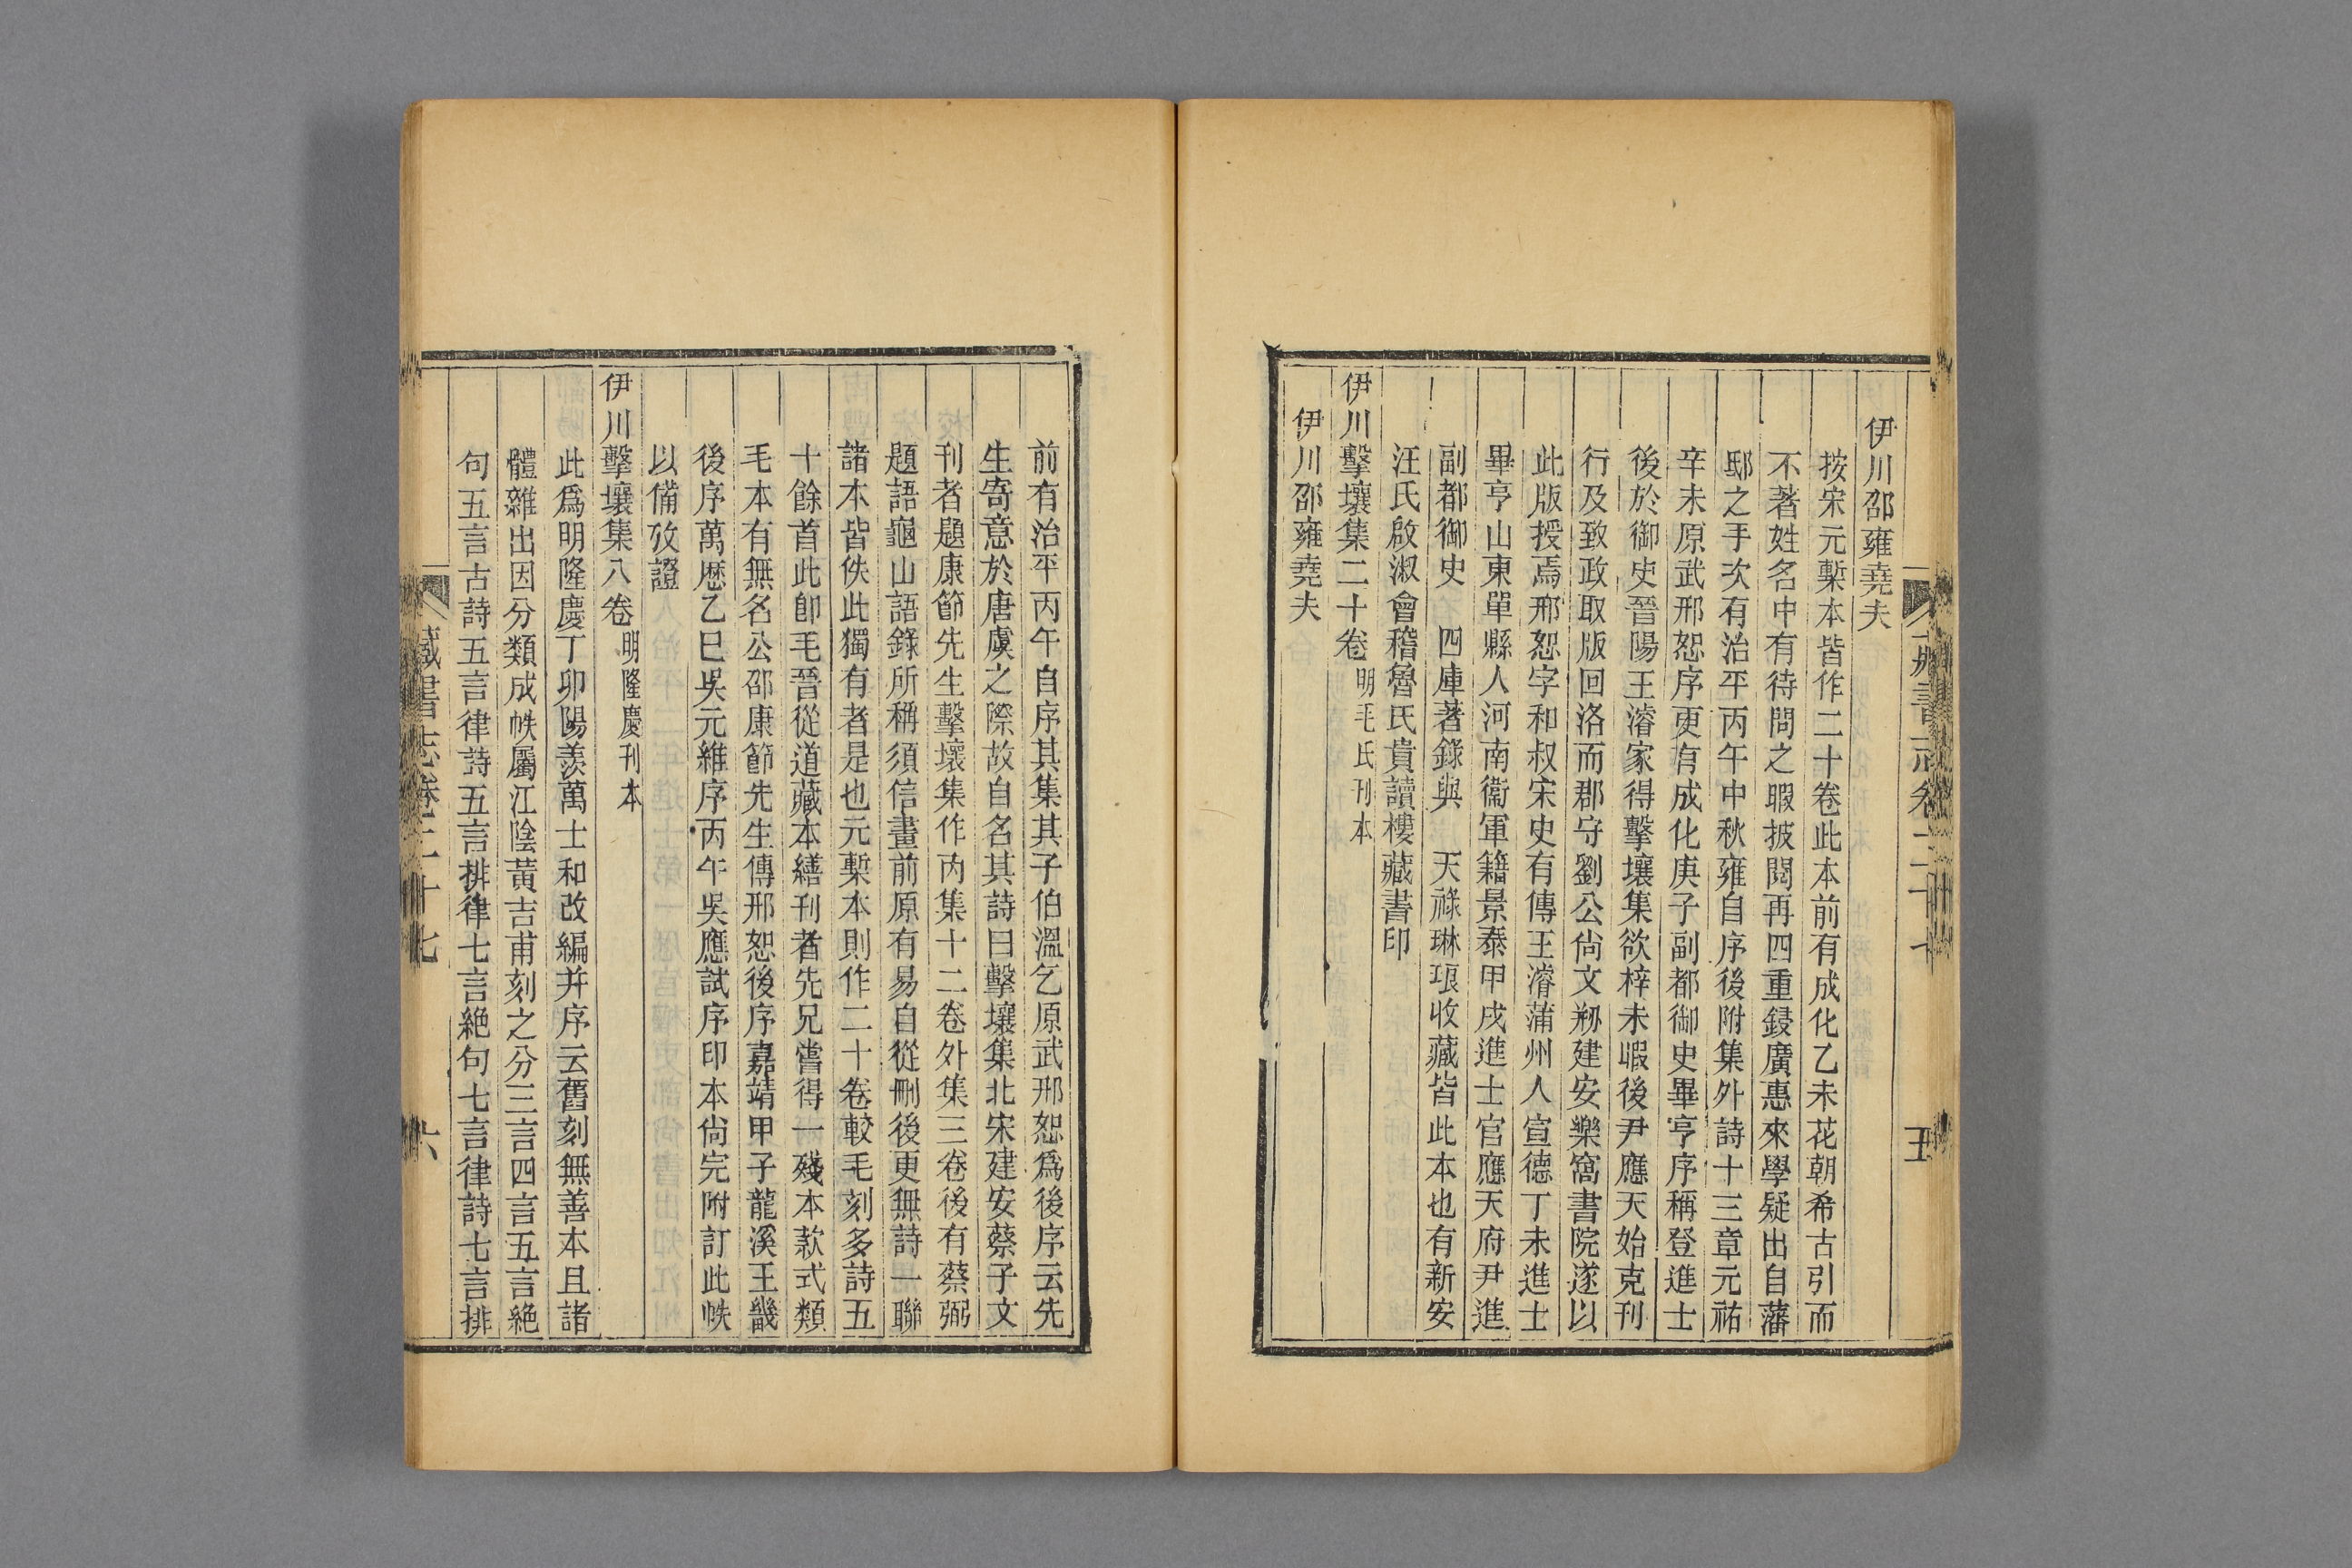 伊川邵雍堯夫
按宋元槧本皆作二十卷此本前有成化乙未花朝希古引而
不著姓名中有待問之暇披閱再四重鋟廣惠來學疑出自藩
邸之手次有治平丙午中秋雍自序後附集外詩十三章元祐
辛未原武邢恕序更有成化庚子副都御史畢亨序稱登進士
後於御史晉陽王濬家得擊壤集欲梓未暇後尹應天始克刊
行及致政取版回洛而郡守劉公尙文剏建安樂窩書院遂以
此版授焉邢恕字和叔宋史有傳王濬蒲州人宣德丁未進士
畢亨山東單縣人河南衞軍籍景泰甲戌進士官應天府尹進
副都御史 四庫著錄與 天祿琳琅收藏皆此本也有新安
汪氏啟淑會稽魯氏貴讀樓藏書印
伊川擊壤集二十卷明毛氏刊本
伊川邵雍堯夫
五
前有治平丙午自序其集其子伯溫乞原武邢恕爲後序云先
生寄意於唐虞之際故自名其詩曰擊壤集北宋建安蔡子文
刊者題康節先生擊壤集作內集十二卷外集三卷後有蔡弼
題語龜山語錄所稱須信畫前原有易自從刪後更無詩一聯
諸本皆佚此獨有者是也元槧本則作二十卷較毛刻多詩五
十餘首此卽毛晉從道藏本繕刊者先兄嘗得一殘本款式類
毛本有無名公邵康節先生傳邢恕後序嘉靖甲子龍溪王畿
後序萬歷乙巳吳元維序丙午吳應試序印本尙完附訂此帙
以備攷證
伊川擊壤集八卷明隆慶刊本
此爲明隆慶丁卯陽羨萬士和改編幷序云舊刻無善本且諸
體雜出因分類成帙屬江陰黃吉甫刻之分三言四言五言絕
句五言古詩五言律詩五言排律七言絕句七言律詩七言排
藏書志卷二十七
六